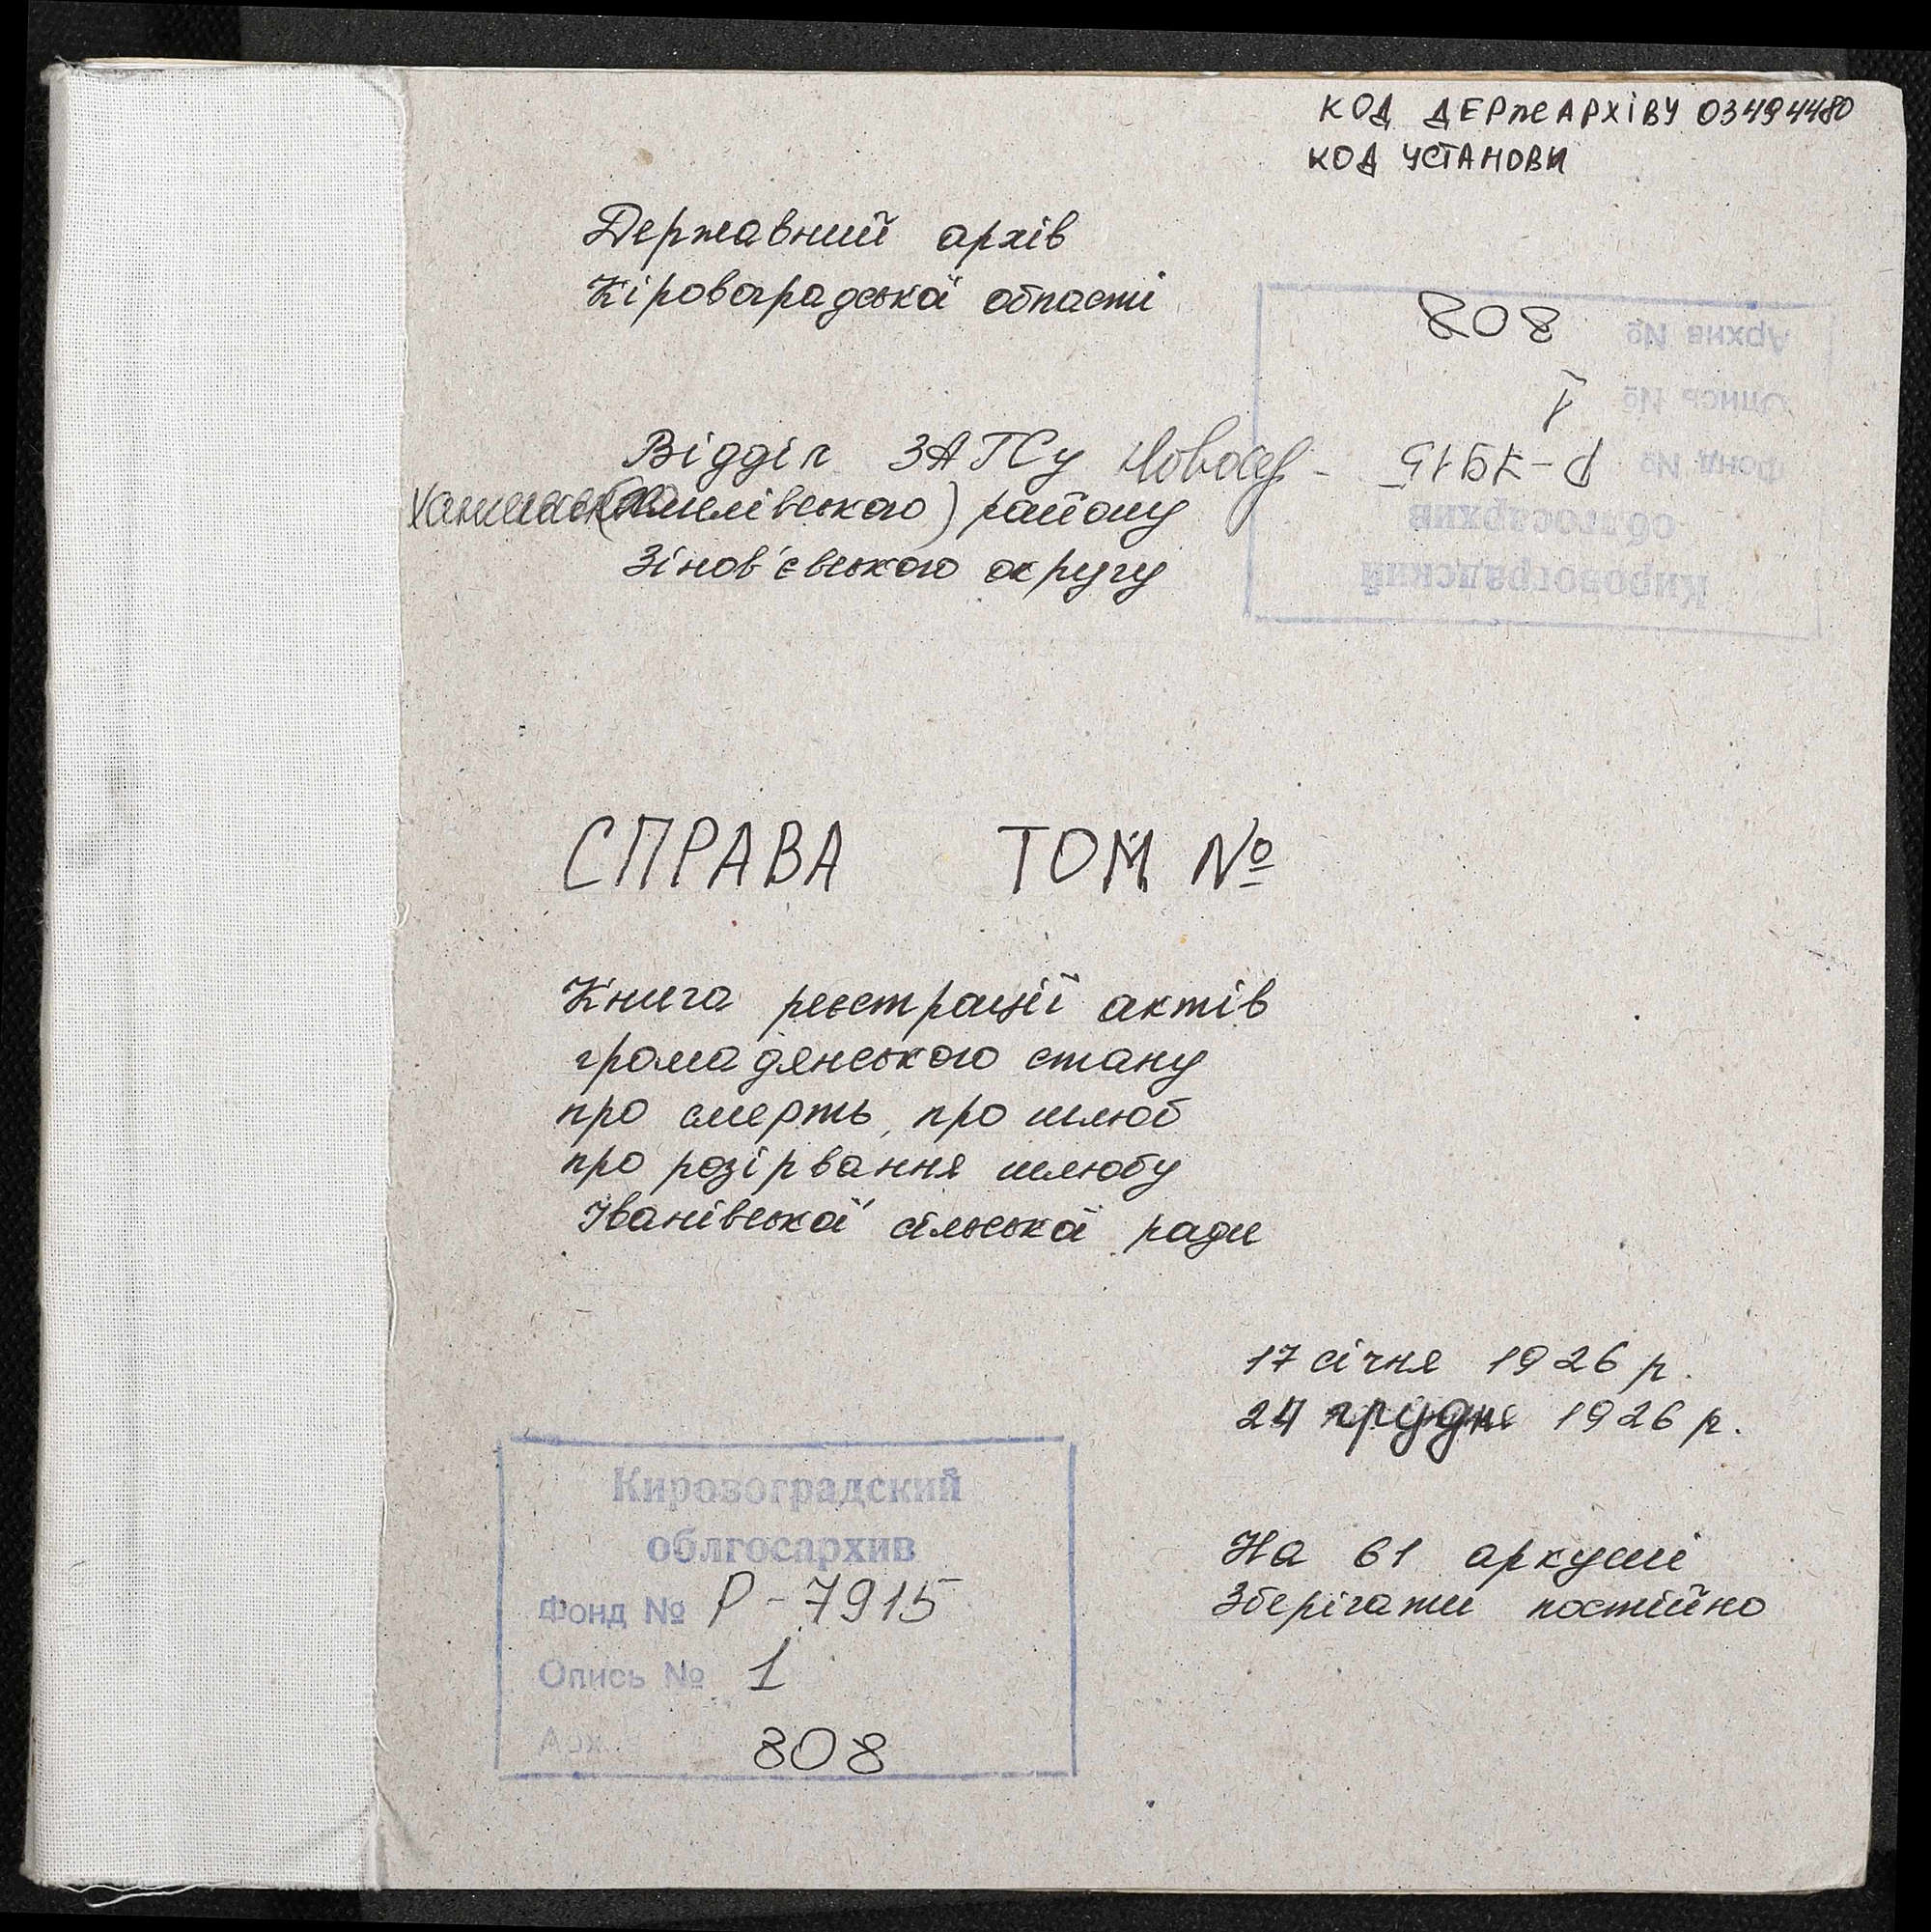 КОД ДЕРЖАРХІВУ 03494480
КОД УСТАНОВИ
Державний архів
Кіровоградської області
808 Архив №
1 Опись №
Р-7915 Фонд №
облгосархив
Кировоградский
Відділ ЗАГСу
району
Зінов'євського округу
СПРАВА ТОМ №
Книга реєстрації актів
громадянського стану
про смерть, про шлюб
про розірвання шлюбу
Іванівської сільської ради
17 січня 1926 р.
24 грудня 1926 р.
На 61 аркуші
Зберігати постійно
Кировоградский
облгосархив
Фонд № Р-7915
Опись № 1
Арх. 808